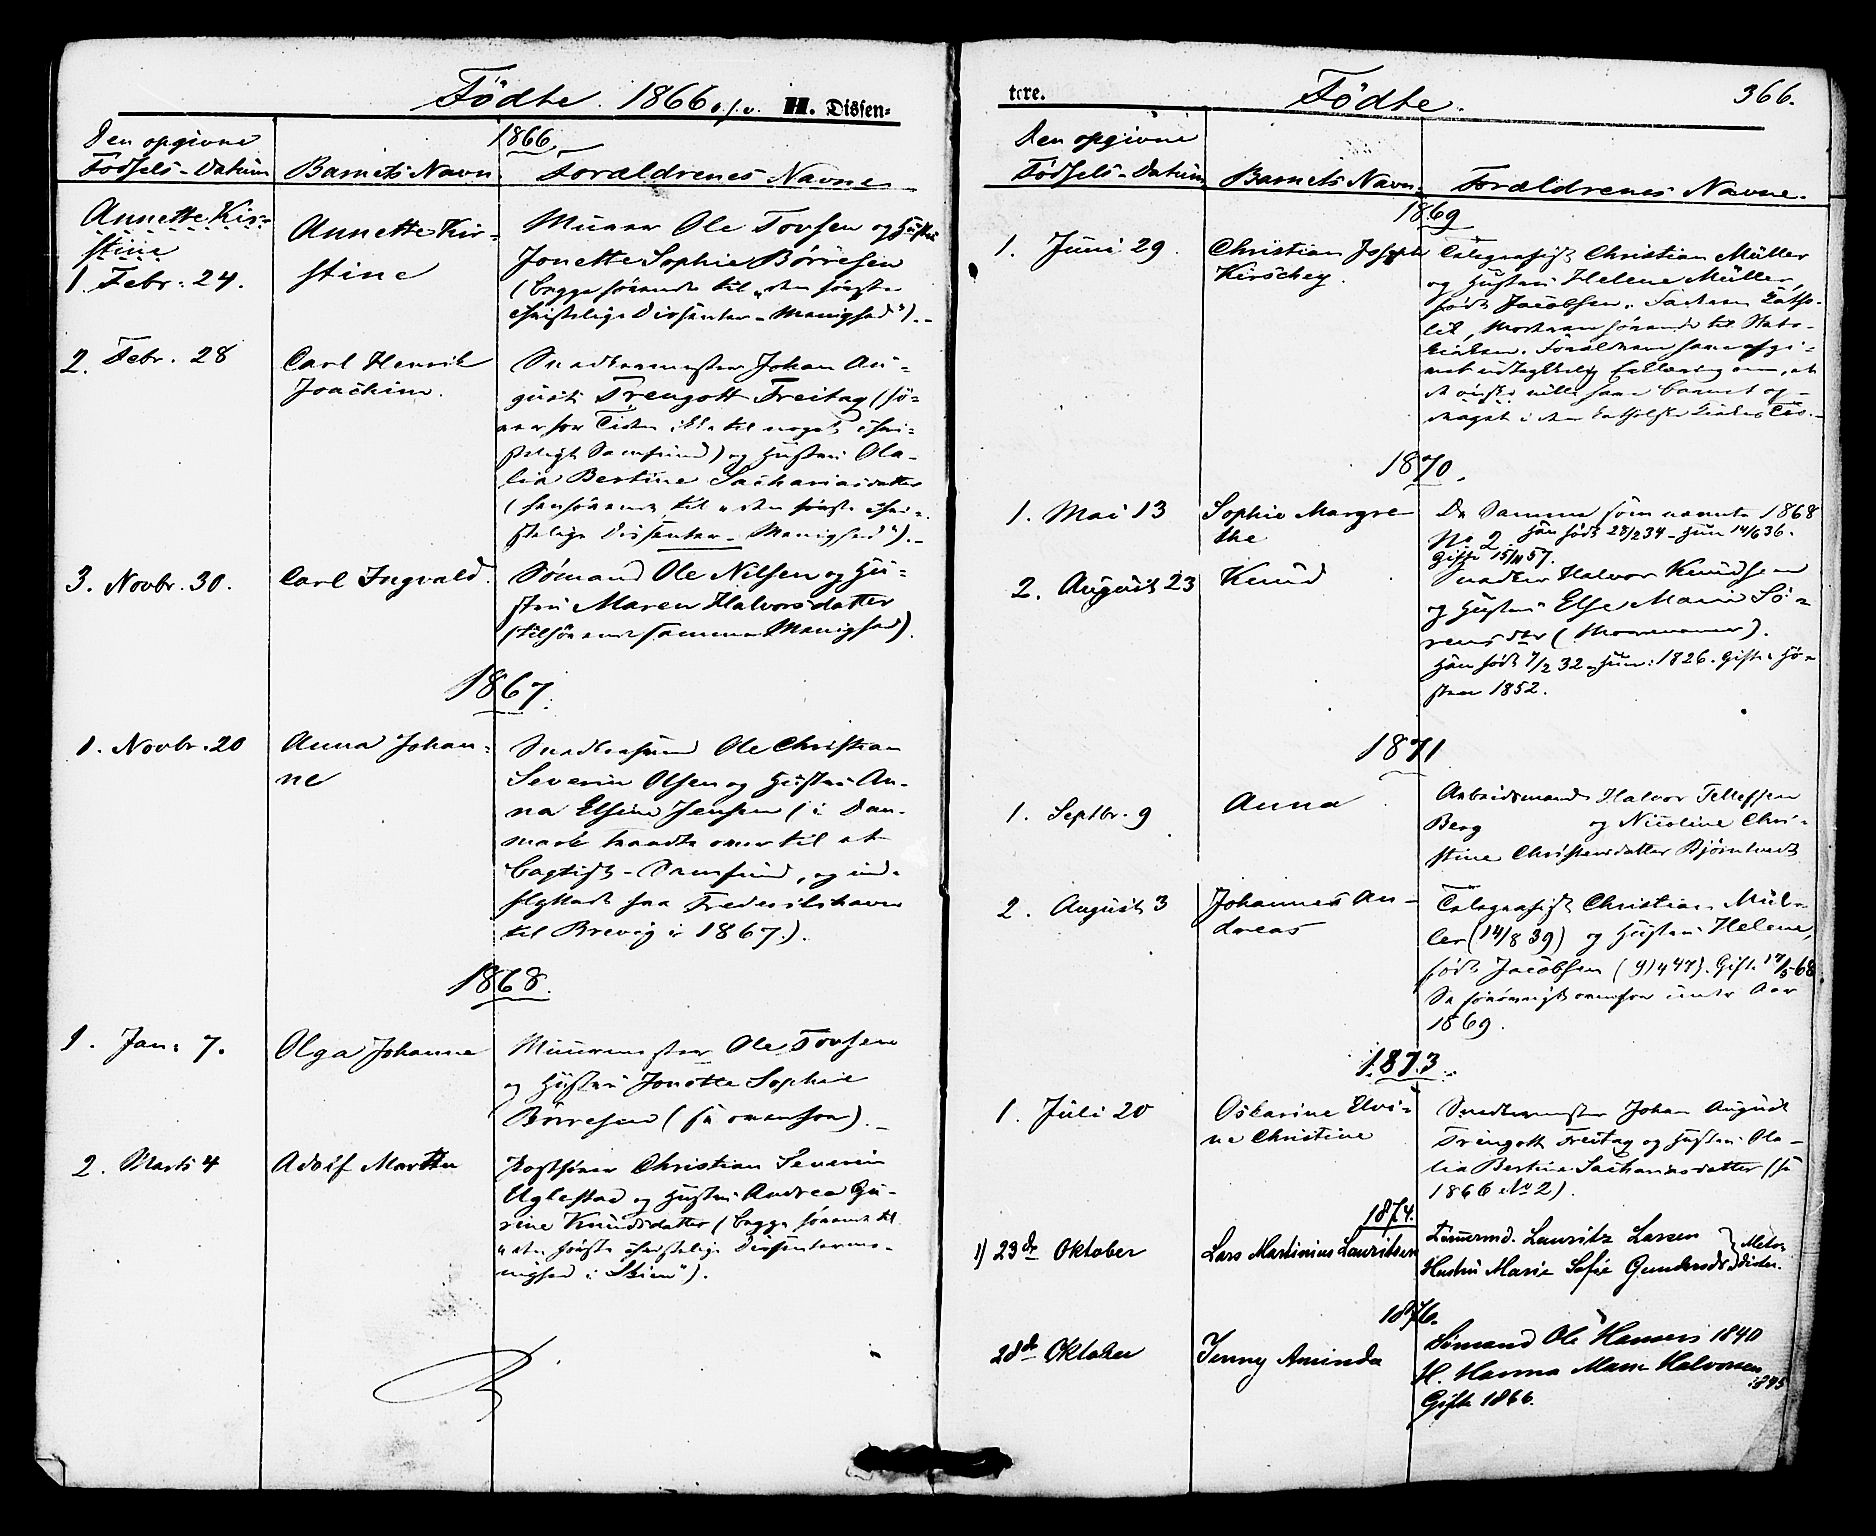 Födte. 1866 o.s.v. H. Dissen-
1866.
Den opgivne
Födsels-Datum
Barnets Navn
Forældrenes Navne
Annette Kir-
stine
1. Febr. 24.
Annette Kir-
stine
Murer Ole Tovsen og Hustru
Jonette Sophie Børresen
(begge hørende til "den første
christelige Dissenter-Menighed").-
2. Febr. 28
Carl Henrik
Joachim.
Snedkermester Johan Au-
gust Trengott Freitag (hö-
rer for Tiden ikke til noget chri-
steligt Samfund) og Hustru Ola-
lia Bertine Sachariasdatter
(henhörende til "den første chri-
stelige Dissenter-Menighed").-
3. Novbr. 30.
Carl Ingvald.
Sømand Ole Nilsen og Hu-
stru Maren Halvorsdatter
(tilhørende samme Menighed).
1867.
1. Novbr. 20
Anna Johan-
ne
Snedkersvend Ole Christian
Severin Olsen og Hustru An-
na Elsine Jensen (i Dan-
mark traadte over til et
Baptist-Samfund, og ind-
flyttede fra Frederikshavn
til Brevig i 1867.).
1868.
1. Jan. 7.
Olga Johanne
Muurmester Ole Tovsen
og Hustru Jonette Sophie
Børresen (se ovenfor).-
2. Marts 4
Adolf Marthin
Postfører Christian Severin
Uglestad og Hustru Andrea Gu-
rine Knudsdatter (begge hørende til
"den første christelige Dissenterme-
nighed i Skien").
tere.
Födte.
366.
Den opgivne
Födsels-Datum
Barnets Navn.
Forældrenes Navne.
1869
1. Juni 29.
Christian Joseph
Kirschey.
Telegrafist Christian Müller
og Hustru Helene Müller,
født Jacobsen. Faderen Katho-
lik, Moderen hørende til Stats-
kirken. Forældrene have afgi-
vet udtrykkelig Erklæring om, at
de ville have Barnet op-
draget i den katholske Kirkes
1870.
1. Mai 13
Sophie Margre-
the
De Samme som nævnte 1868
No 2. Han født 28/2 34 - Hun 14/6 36.
Gifte 15/11 57.
2. August 23
Knud
Snedker Halvor Knudsen
og Hustru Else Marie Sö-
rensdtr (Mormoner).
Han født 7/2 32 - Hun: 1826. Gifte Hø-
sten 1852.
1871
1. Septbr. 9
Anna
Arbeidsmand Halvor Tellefsen
Berg og Nicoline Chri-
stine Christensdatter Bjørntvedt
2. August 3
Johannes An-
dreas
Telegrafist Christian Mül-
ler (14/8 39) og Hustru Helene,
født Jacobsen (9/4 47). Gifte 17/5 68
Se forøvrigt ovenfor under Aar
1869.
1873.
1. Juli 20
Oskarine Elvi-
ne Christine
Snedkermester Johan August
Tringott Freitag og Hustru Ola-
lia Bertine Sachariasdatter (se
1866 No 2).
1874.
1) 23de Oktober
Lars Martinius Lauritsen
Tømmermd. Lauritz Larsen
Hustru Marie Sofie Gundersdtr
} Meto-
dister.
1876.
28de Oktober
Jenny Aminda
Sömand Ole Hansen 1840
H. Hanna Maren Halvorsen
1845
Gifte 1866.